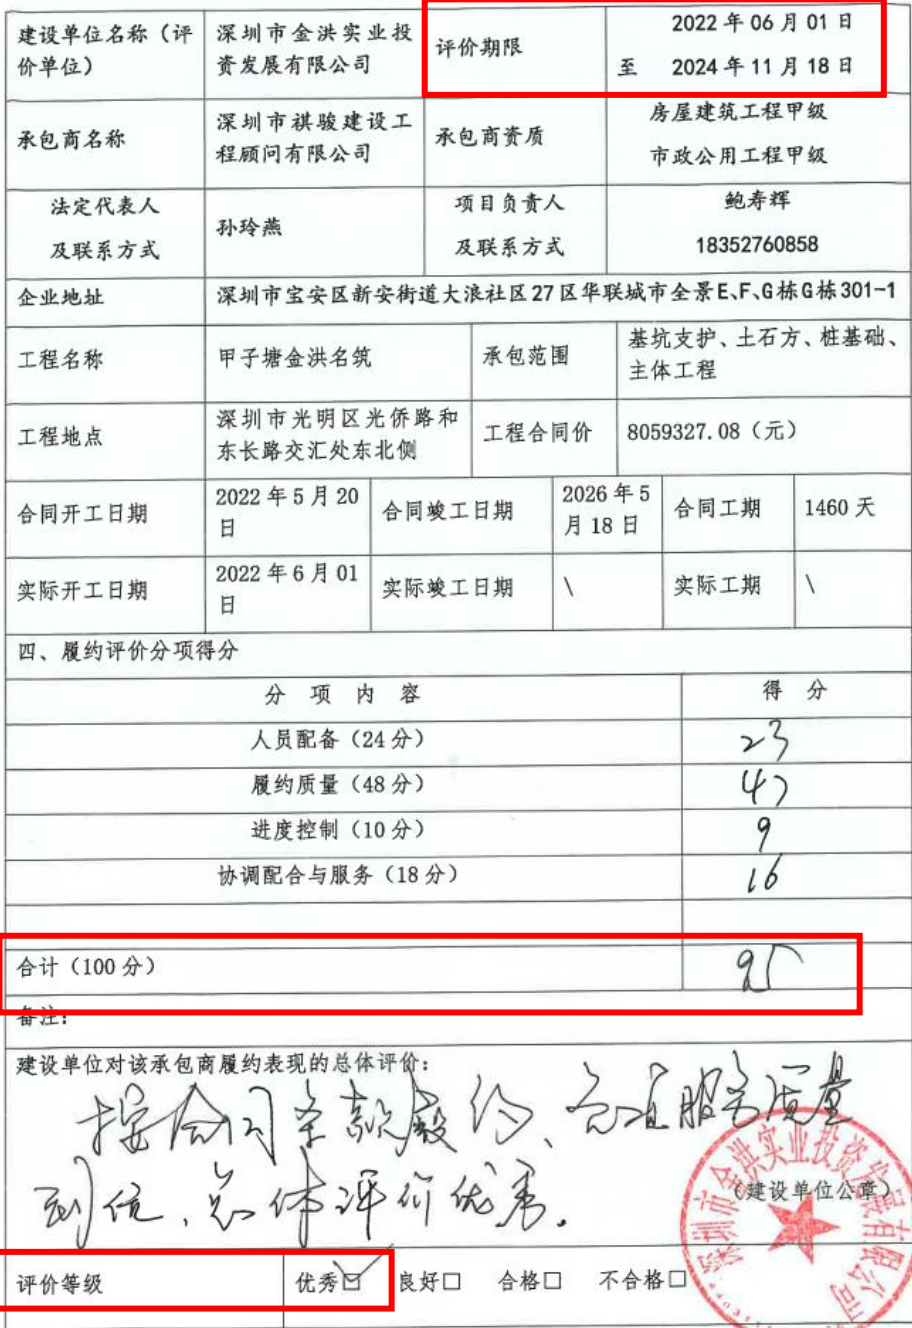 建设单位名称（评价单位） 深圳市金洪实业投资发展有限公司 评价期限 2022年06月01日
至 2024年11月18日
承包商名称 深圳市祺骏建设工程顾问有限公司 承包商资质 房屋建筑工程甲级
市政公用工程甲级
法定代表人
及联系方式 孙玲燕 项目负责人
及联系方式 鲍寿辉
18352760858
企业地址 深圳市宝安区新安街道大浪社区27区华联城市全景E、F、G栋G栋301-1
工程名称 甲子塘金洪名筑 承包范围 基坑支护、土石方、桩基础、
主体工程
工程地点 深圳市光明区光侨路和
东长路交汇处东北侧 工程合同价 8059327.08（元）
合同开工日期 2022年5月20日 合同竣工日期 2026年5月18日 合同工期 1460天
实际开工日期 2022年6月01日 实际竣工日期 \ 实际工期 \
四、履约评价分项得分
分 项 内 容 得 分
人员配备（24分） 23
履约质量（48分） 47
进度控制（10分） 9
协调配合与服务（18分） 16
合计（100分） 95
备注：
建设单位对该承包商履约表现的总体评价：
按合同条款履约、各项服务质量
到位、总体评价优秀。
（建设单位公章）
深圳市金洪实业投资发展有限公司
评价等级 优秀☑ 良好□ 合格□ 不合格□